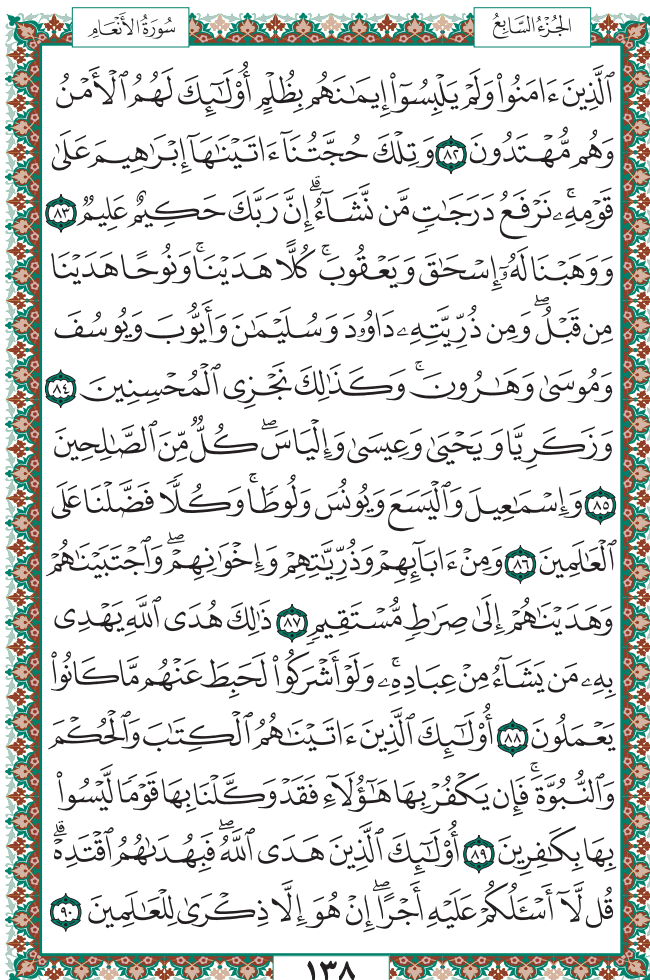 سُورَةُ الأَنْعَامِ
الجُزْءُ السَّابِعُ
ٱلَّذِينَ ءَامَنُوا۟ وَلَمْ يَلْبِسُوٓا۟ إِيمَٰنَهُم بِظُلْمٍ أُو۟لَٰٓئِكَ لَهُمُ ٱلْأَمْنُ
وَهُم مُّهْتَدُونَ ٨٢ وَتِلْكَ حُجَّتُنَآ ءَاتَيْنَٰهَآ إِبْرَٰهِيمَ عَلَىٰ
قَوْمِهِۦۚ نَرْفَعُ دَرَجَٰتٍ مَّن نَّشَآءُۗ إِنَّ رَبَّكَ حَكِيمٌ عَلِيمٌ ٨٣
وَوَهَبْنَا لَهُۥٓ إِسْحَٰقَ وَيَعْقُوبَۚ كُلًّا هَدَيْنَاۚ وَنُوحًا هَدَيْنَا
مِن قَبْلُۖ وَمِن ذُرِّيَّتِهِۦ دَاوُۥدَ وَسُلَيْمَٰنَ وَأَيُّوبَ وَيُوسُفَ
وَمُوسَىٰ وَهَٰرُونَۚ وَكَذَٰلِكَ نَجْزِى ٱلْمُحْسِنِينَ ٨٤
وَزَكَرِيَّا وَيَحْيَىٰ وَعِيسَىٰ وَإِلْيَاسَۖ كُلٌّ مِّنَ ٱلصَّٰلِحِينَ
٨٥ وَإِسْمَٰعِيلَ وَٱلْيَسَعَ وَيُونُسَ وَلُوطًاۚ وَكُلًّا فَضَّلْنَا عَلَى
ٱلْعَٰلَمِينَ ٨٦ وَمِنْ ءَابَآئِهِمْ وَذُرِّيَّٰتِهِمْ وَإِخْوَٰنِهِمْۖ وَٱجْتَبَيْنَٰهُمْ
وَهَدَيْنَٰهُمْ إِلَىٰ صِرَٰطٍ مُّسْتَقِيمٍ ٨٧ ذَٰلِكَ هُدَى ٱللَّهِ يَهْدِى
بِهِۦ مَن يَشَآءُ مِنْ عِبَادِهِۦۚ وَلَوْ أَشْرَكُوا۟ لَحَبِطَ عَنْهُم مَّا كَانُوا۟
يَعْمَلُونَ ٨٨ أُو۟لَٰٓئِكَ ٱلَّذِينَ ءَاتَيْنَٰهُمُ ٱلْكِتَٰبَ وَٱلْحُكْمَ
وَٱلنُّبُوَّةَۚ فَإِن يَكْفُرْ بِهَا هَٰٓؤُلَآءِ فَقَدْ وَكَّلْنَا بِهَا قَوْمًا لَّيْسُوا۟
بِهَا بِكَٰفِرِينَ ٨٩ أُو۟لَٰٓئِكَ ٱلَّذِينَ هَدَى ٱللَّهُۖ فَبِهُدَىٰهُمُ ٱقْتَدِهْۗ
قُل لَّآ أَسْـَٔلُكُمْ عَلَيْهِ أَجْرًاۖ إِنْ هُوَ إِلَّا ذِكْرَىٰ لِلْعَٰلَمِينَ ٩٠
١٣٨